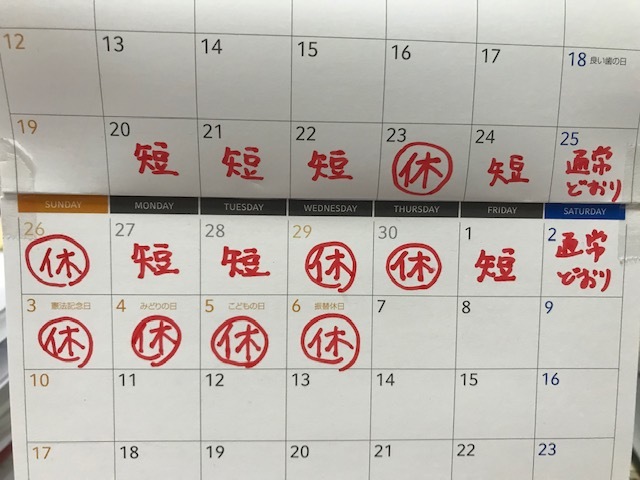 12 13 14 15 16 17 18 良い歯の日
19 20 21 22 23 24 25
短 短 短 休 短 通常
どおり
SUNDAY MONDAY TUESDAY WEDNESDAY THURSDAY FRIDAY SATURDAY
26 27 28 29 30 1 2
休 短 短 休 休 短 通常
どおり
3 憲法記念日 4 みどりの日 5 こどもの日 6 振替休日 7 8 9
休 休 休 休
10 11 12 13 14 15 16
17 18 19 20 21 22 23